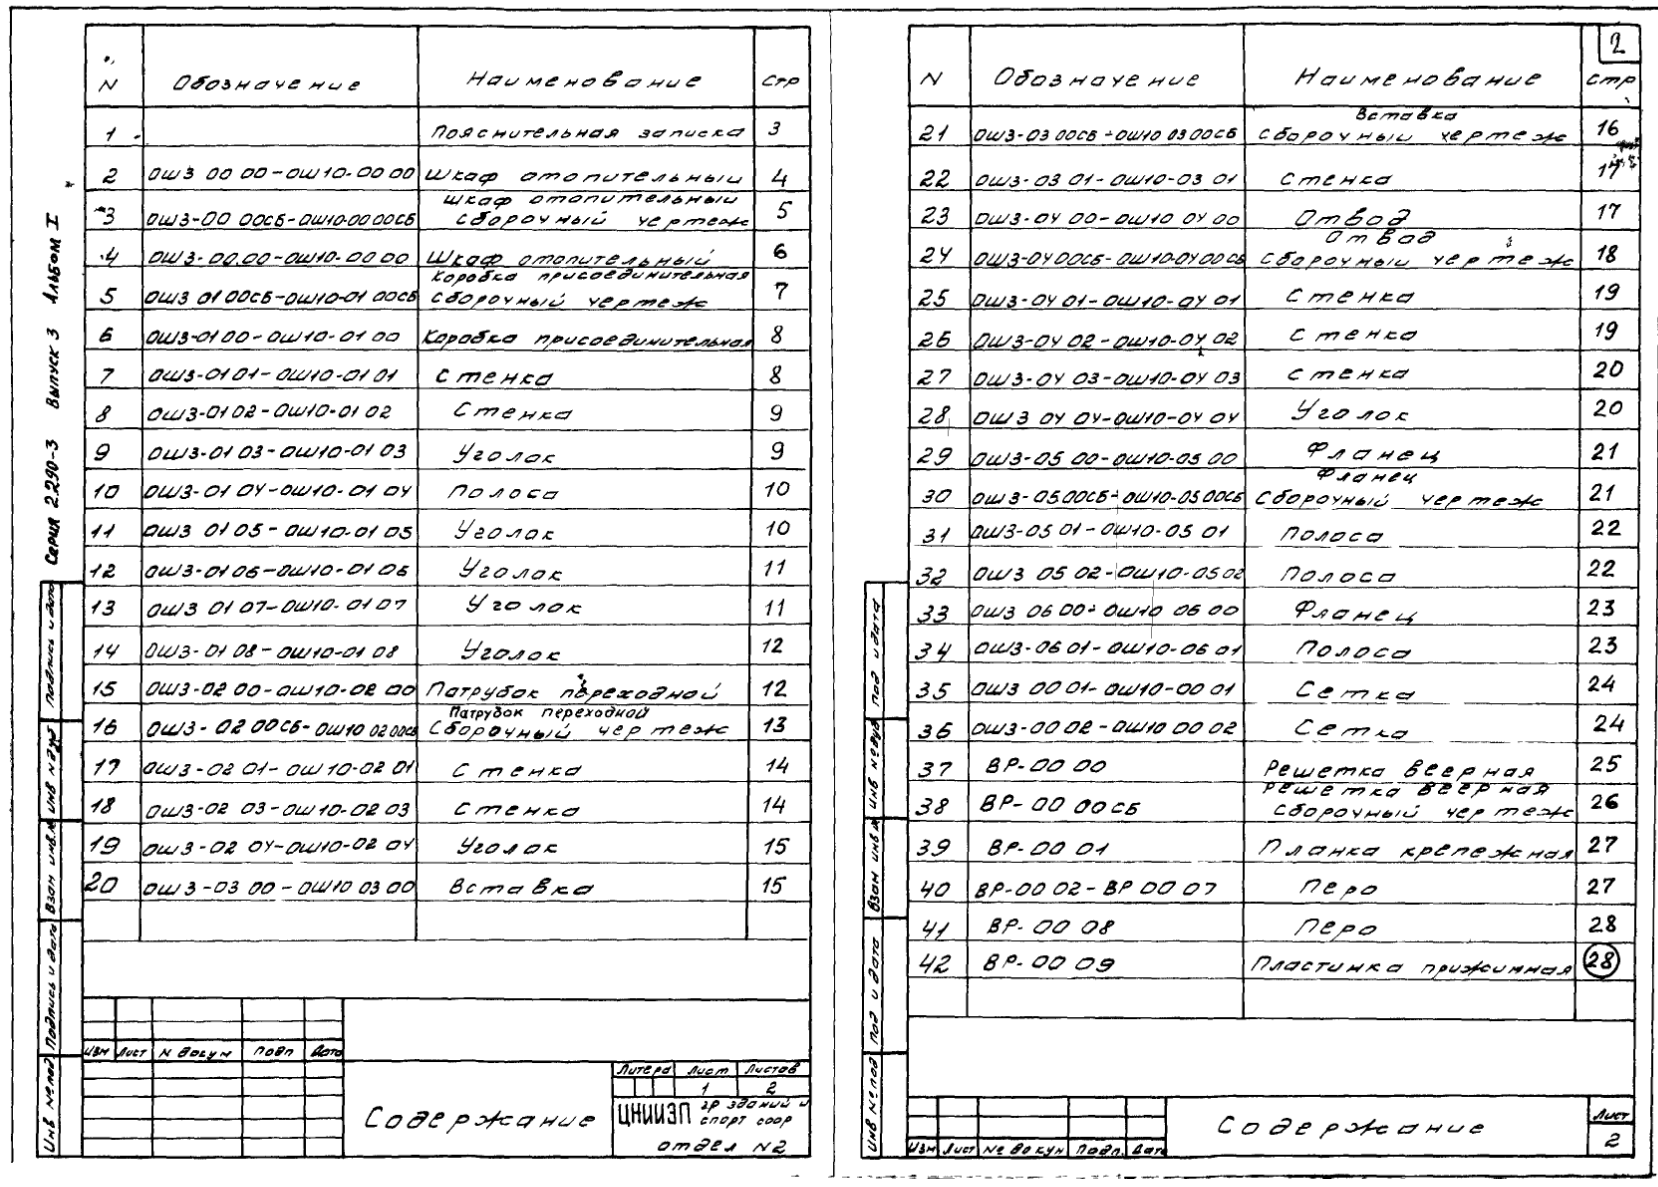 Серия 2.290-3 Выпуск 3 Альбом I
N Обозначение Наименование стр
1 Пояснительная записка 3
2 ОШ3 00 00-ОШ10-00 00 Шкаф отопительный 4
3 ОШ3-00 00СБ-ОШ10-00 00СБ Шкаф отопительный сборочный чертеж 5
4 ОШ3-00.00-ОШ10-00 00 Шкаф отопительный 6
5 ОШ3 01 00СБ-ОШ10-01 00СБ Коробка присоединительная сборочный чертеж 7
6 ОШ3-01 00-ОШ10-01 00 Коробка присоединительная 8
7 ОШ3-01 01-ОШ10-01 01 Стенка 8
8 ОШ3-01 02-ОШ10-01 02 Стенка 9
9 ОШ3-01 03-ОШ10-01 03 Уголок 9
10 ОШ3-01 04-ОШ10-01 04 Полоса 10
11 ОШ3 01 05-ОШ10-01 05 Уголок 10
12 ОШ3-01 06-ОШ10-01 06 Уголок 11
13 ОШ3 01 07-ОШ10-01 07 Уголок 11
14 ОШ3-01 08-ОШ10-01 08 Уголок 12
15 ОШ3-02 00-ОШ10-02 00 Патрубок переходной 12
16 ОШ3-02 00СБ-ОШ10 02 00СБ Патрубок переходной Сборочный чертеж 13
17 ОШ3-02 01-ОШ10-02 01 Стенка 14
18 ОШ3-02 03-ОШ10-02 03 Стенка 14
19 ОШ3-02 04-ОШ10-02 04 Уголок 15
20 ОШ3-03 00-ОШ10 03 00 Вставка 15
Изм Лист N докум Подп Дата
Содержание
Литера Лист Листов
1 2
ЦНИИЭП гр зданий и спорт соор
отдел N2
Инв № подл Подпись и дата Взам инв.№ Инв № дубл Подпись и дата
2
N Обозначение Наименование стр
21 ОШ3-03 00СБ-ОШ10 03 00СБ Вставка сборочный чертеж 16
22 ОШ3-03 01-ОШ10-03 01 Стенка 17
23 ОШ3-04 00-ОШ10 04 00 Отвод 17
24 ОШ3-04 00СБ-ОШ10-04 00СБ Отвод сборочный чертеж 18
25 ОШ3-04 01-ОШ10-04 01 Стенка 19
26 ОШ3-04 02-ОШ10-04 02 Стенка 19
27 ОШ3-04 03-ОШ10-04 03 Стенка 20
28 ОШ3 04 04-ОШ10-04 04 Уголок 20
29 ОШ3-05 00-ОШ10-05 00 Фланец 21
30 ОШ3-05 00СБ-ОШ10-05 00СБ Фланец Сборочный чертеж 21
31 ОШ3-05 01-ОШ10-05 01 Полоса 22
32 ОШ3 05 02-ОШ10-05 02 Полоса 22
33 ОШ3 06 00-ОШ10 06 00 Фланец 23
34 ОШ3-06 01-ОШ10-06 01 Полоса 23
35 ОШ3 00 01-ОШ10-00 01 Сетка 24
36 ОШ3-00 02-ОШ10 00 02 Сетка 24
37 ВР-00 00 Решетка веерная 25
38 ВР-00 00СБ Решетка веерная сборочный чертеж 26
39 ВР-00 01 Планка крепежная 27
40 ВР-00 02-ВР 00 07 Перо 27
41 ВР-00 08 Перо 28
42 ВР-00 09 Пластинка прижимная 28
Изм Лист № докум Подп. Дата
Содержание
Лист
2
Инв № подл Под и дата Взам инв № Инв № дубл Под и дата